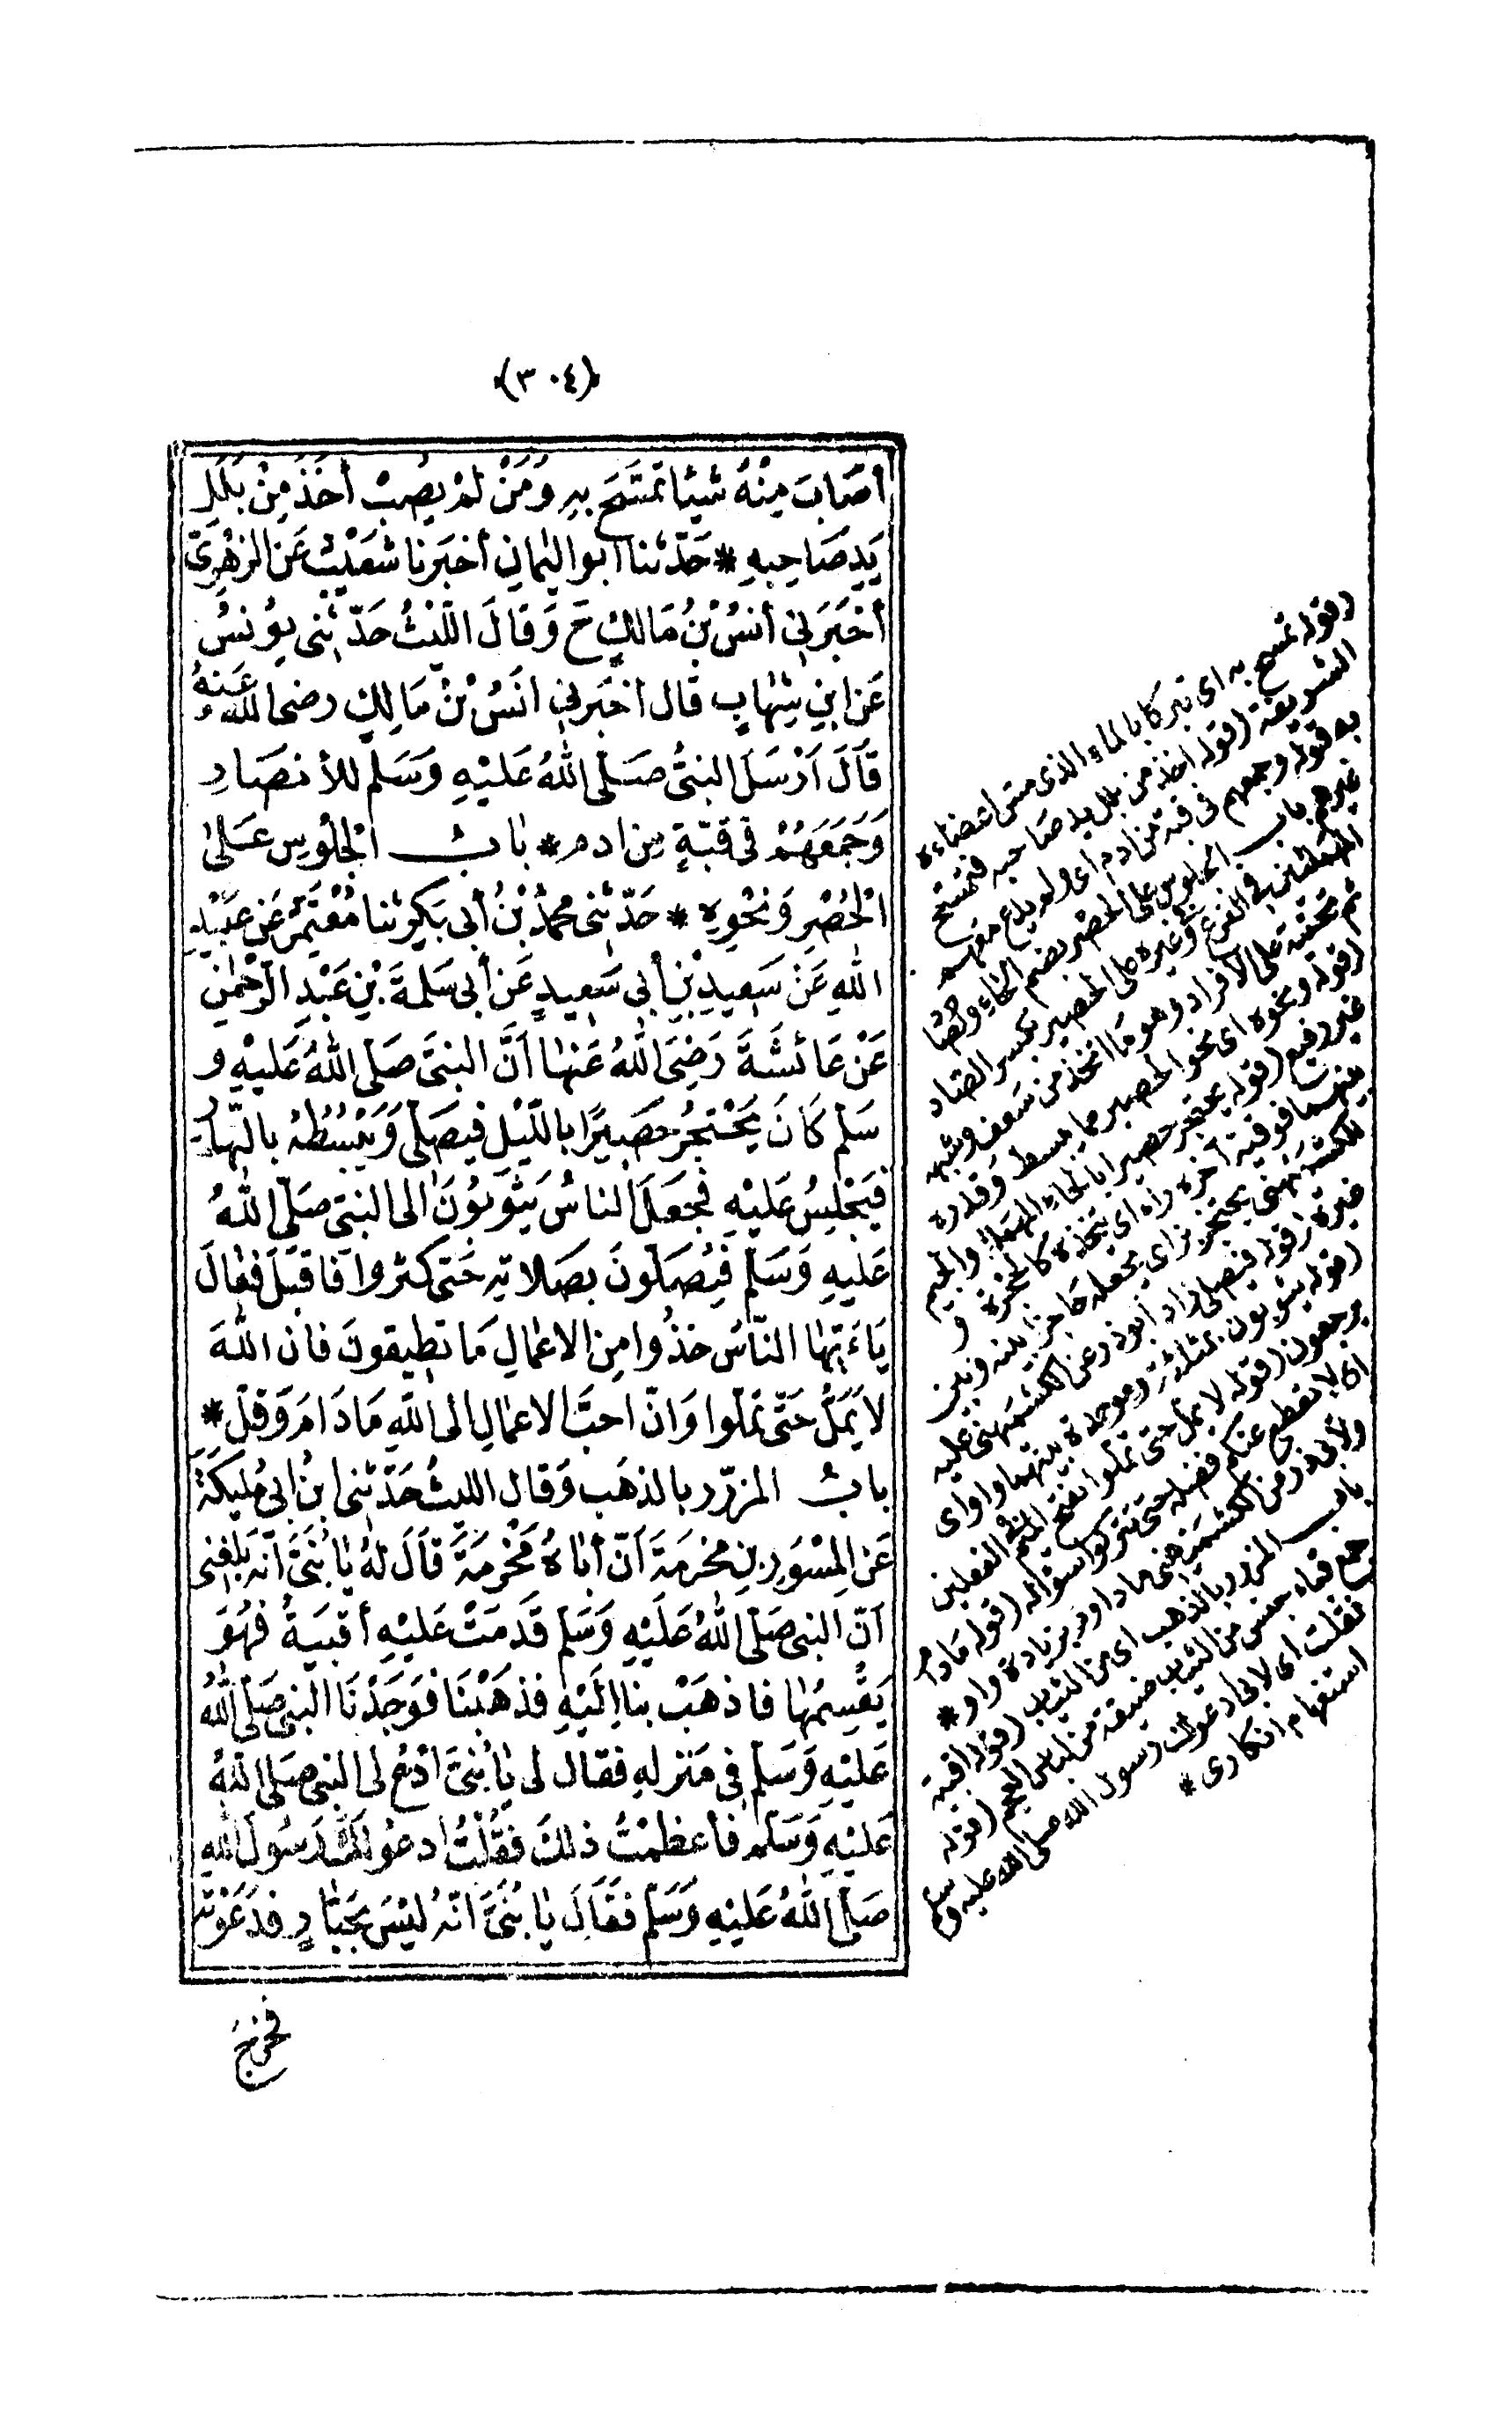 (٣٠٤)
أَصَابَ مِنْهُ شَيْئًا تَمَسَّحَ بِهِ وَمَنْ لَمْ يُصِبْ أَخَذَ مِنْ بَلَلِ
يَدِ صَاحِبِهِ * حَدَّثَنا ابو اليمانِ أخبَرَنا شُعَيْبٌ عَنِ الزهْرِيِّ
أَخْبَرَنِي أَنَسُ بْنُ مَالِكٍ ح وَقَالَ اللَّيْثُ حَدَّثَنِي يُونسُ
عَنِ ابنِ شِهَابٍ قال اخبَرَنِي انَسُ بْنُ مَالِكٍ رضي اللهُ عَنهُ
قَالَ اَرْسَلَ النبيُّ صَلَّى اللهُ عَلَيْهِ وَسَلَّم للأنصَارِ
وَجَمَعَهُمْ في قبّةٍ مِن ادم * بابُ الْجُلُوسِ عَلىٰ
الْحُصْرِ وَنحْوِهِ * حَدّثَنِي محمدُ بْنُ أبي بَكرٍ ثنا مُعْتَمِرٌ عَن عبَيْدِ
اللهِ عَنْ سَعِيدِ بْنِ أَبي سَعِيدٍ عَن أبي سَلَمةَ بْنِ عَبْدِ الرّحْمٰنِ
عَنْ عَائشَةَ رَضِيَ اللهُ عَنهٰا اَنَّ النبيَّ صَلَّى اللهُ عَلَيْهِ وَ
سَلَّم كَانَ يَحْتَجِرُ حَصِيرًا بِاللَّيْلِ فيصَلِّي وَيَبْسُطُهُ بالنّهارِ
فيَجْلِسُ عَلَيْهِ فجَعَلَ الناسُ يَثُوبُونَ الى النبي صَلَّى اللهُ
عَليهِ وَسَلَّم فيُصَلّونَ بصَلاتِهِ حَتى كثروا فَاقبَلَ فقالَ
يَا اَيّهَا النّاسُ خذُوا مِنَ الاعمالِ مَا تطِيقونَ فان اللهَ
لاَ يَمَلُّ حَتّى تمَلّوا وَانّ احبَّ الاعمالِ الى اللهِ مَا دَامَ وَقلّ *
بابُ المزرّرِ بالذهَب وَقال الليثُ حَدّثنِي ابنُ ابي مُلَيكَةَ
عَنِ المِسْوَرِ بنِ مخرمَةَ اَنّ أباهُ مَخْرَمَةَ قَالَ لهُ يَا بُنَيَّ انّه بَلغَنِي
اَنّ النبي صَلّى اللهُ عَلَيْهِ وَسَلَّم قَدمَتْ عَليْهِ أقبيَةٌ فهُوَ
يَقْسِمُهٰا فاذهَبْ بنا اِلَيْهِ فذهَبْنَا فوَجَدْنَا النبي صَلّى اللهُ
عَليْهِ وَسَلَّم في مَنزلهِ فقال لي يَا بُنَيَّ ادْعُ لي النبي صَلى اللهُ
عَليْهِ وَسَلَّم فأعظمْتُ ذلكَ فقُلْتُ ادعُو لكَ رَسُولَ اللهِ
صَلّى اللهُ عَلَيْهِ وَسَلَّم فقَالَ يَا بُنَيَّ انّهُ ليْسَ بجَبّارٍ فدَعَوْتهُ
فخرَجَ
(قوله تمسح به اى تبركا بالماء الذى مس اعضاءه
الشريفة (قوله اخذ من بلل يد صاحبه فتمسح
به قوله وجمعهم فى قبة من ادم اى ولم يدع معهم
غيرهم باب الجلوس على الحصر بضم الحاء والصاد
المهملتين فى الفرع وغيره على الحصير بكسر الصاد
ثم تحتية على الافراد وهو ما اتخذ من سعف وشبهه
(قوله ونحوه اى نحو الحصير مما يبسط وقدره
غير رفيع (قوله يحتجر حصيرا بالحاء المهملة والجيم
بينهما فوقية آخره راء اى يتخذه كالحجرة و
للكشميهنى يحتجز بزاى يجعله حاجزا بينه وبين
غيره (قوله فيصلى زاد ابوذر عن الكشميهنى عليه
(قوله يثوبون بمثلثة وموحدة بينهما واو اى
يرجعون (قوله لا يمل حتى تملوا بفتح الميم فى الفعلين
اى لا يقطع عنكم فضله حتى تتركوا سؤاله (قوله ما دام
ولابى ذر من الكشميهنى ما داوم بزيادة واو *
باب المزرر بالذهب اى من الثياب (قوله اقبية
جمع قباء جنس من الثياب ضيقة من لباس العجم (قوله
فقلت اى لابى ادعو لك رسول الله صلى الله عليه وسلم
استفهام انكارى *